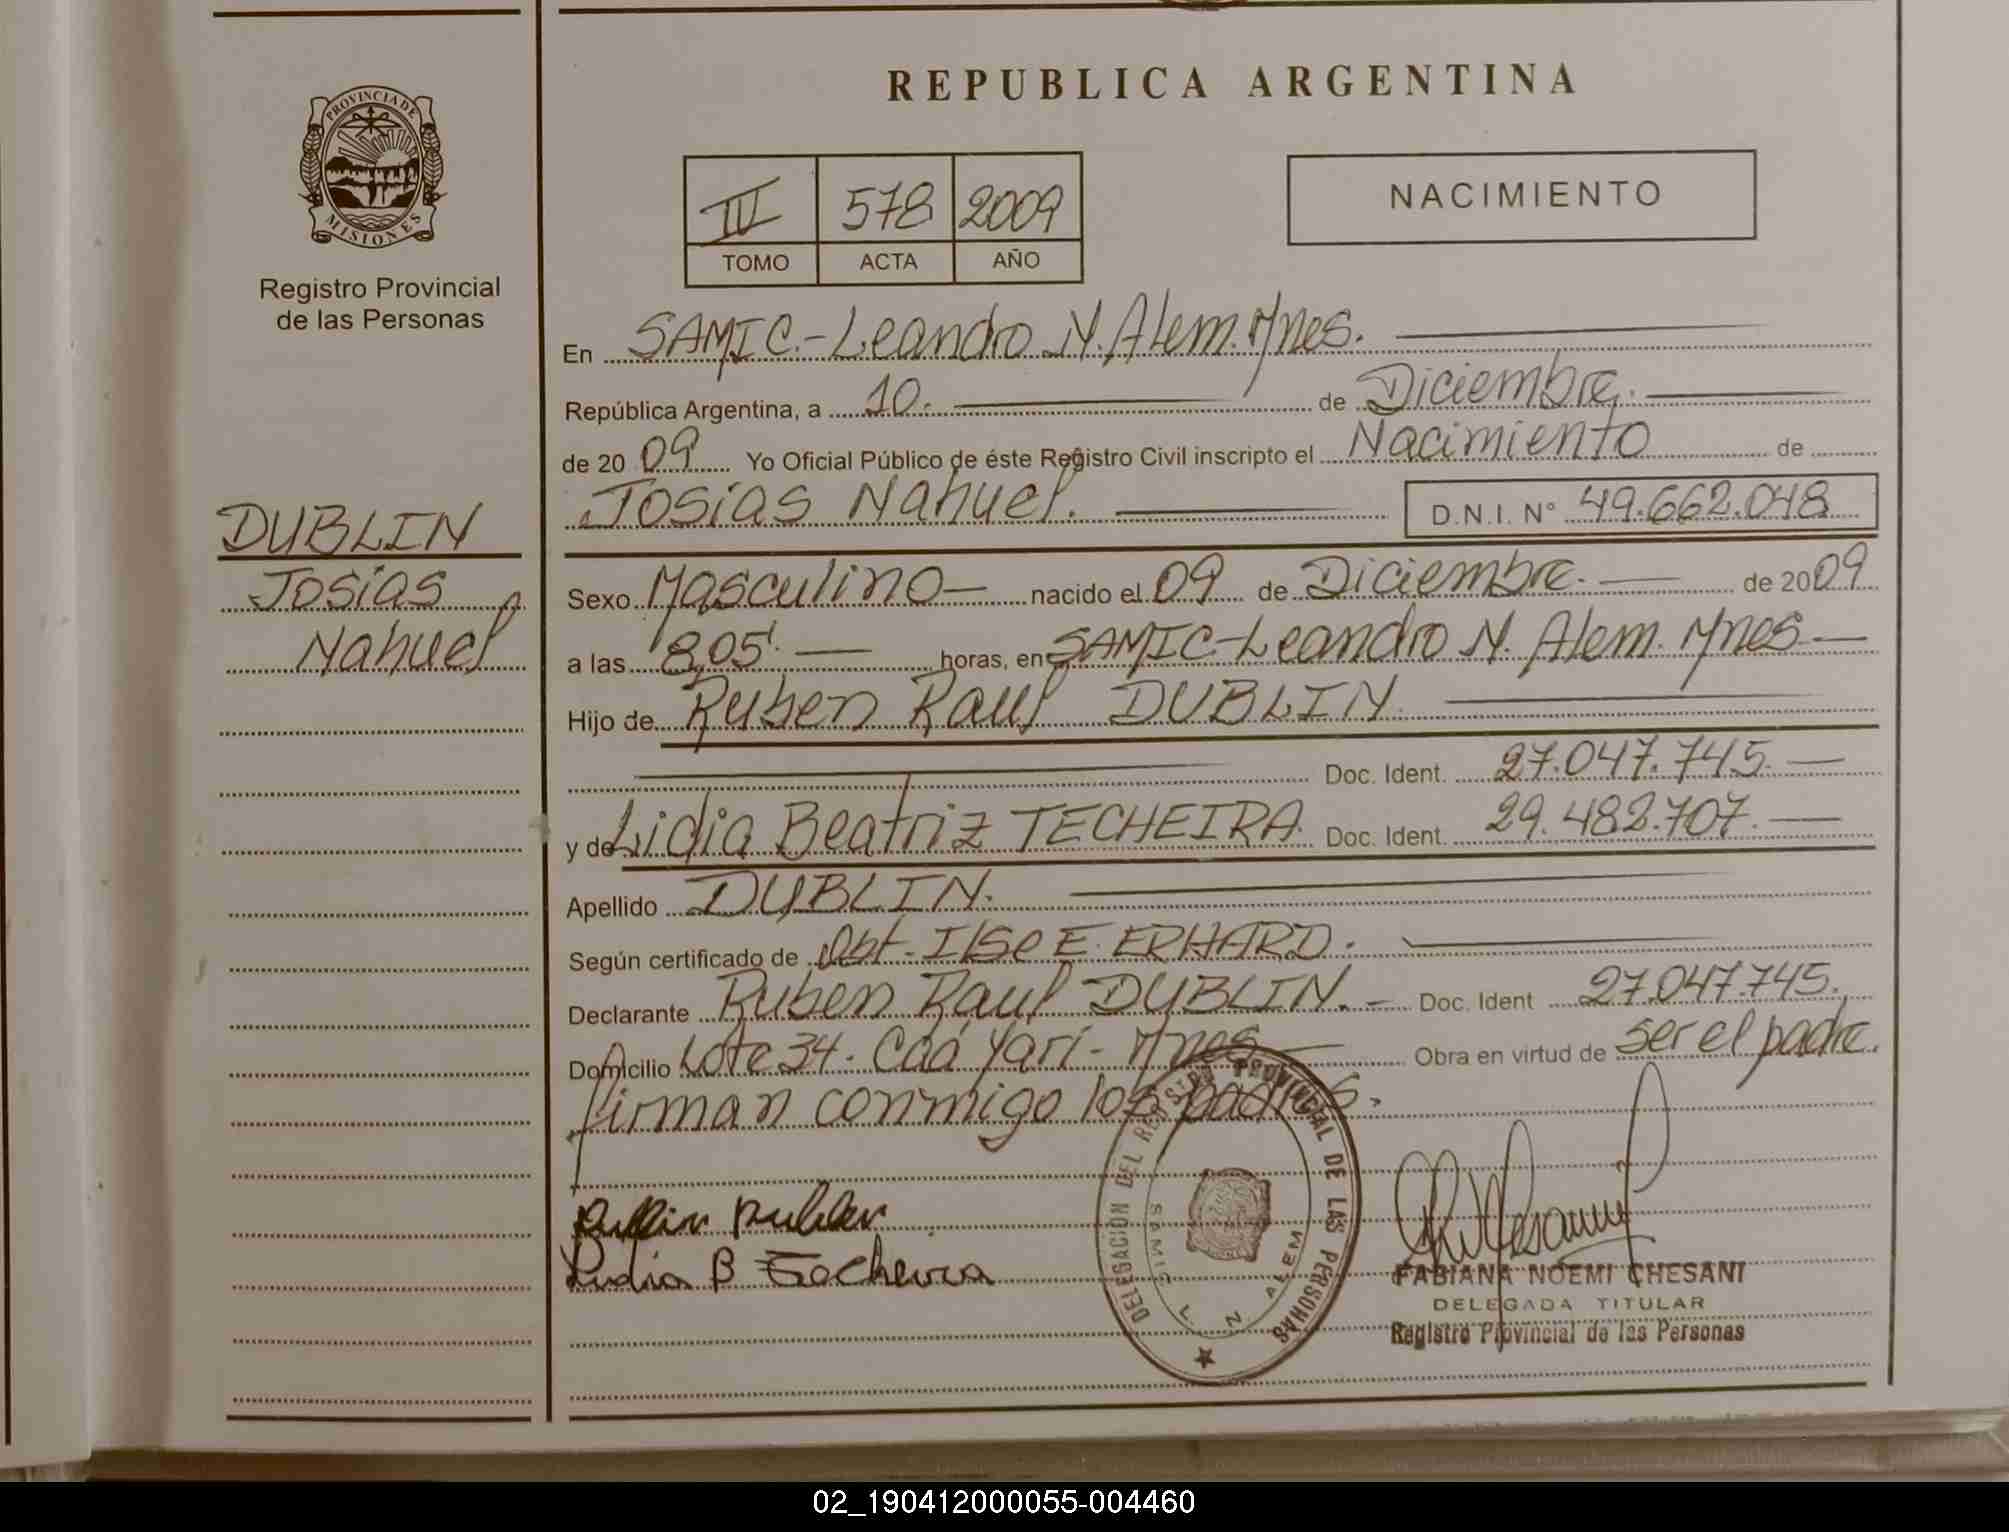 PROVINCIA DE
MISIONES
Registro Provincial
de las Personas
DUBLIN
Josías
Nahuel
REPUBLICA ARGENTINA
III 578 2009
TOMO ACTA AÑO
NACIMIENTO
En SAMIC.-Leandro N. Alem. Mnes.
República Argentina, a 10. de Diciembre.
de 20 09 Yo Oficial Público de éste Registro Civil inscripto el Nacimiento de
Josías Nahuel. D.N.I. N° 49.662.048
Sexo Masculino nacido el 09 de Diciembre. de 20 09
a las 8,05'. horas, en SAMIC-Leandro N. Alem. Mnes
Hijo de Ruben Raul DUBLIN.
Doc. Ident. 27.047.745.
y de Lidia Beatriz TECHEIRA. Doc. Ident. 29.482.707.
Apellido DUBLIN.
Según certificado de Obt. Ilse E. ERHARD.
Declarante Ruben Raul DUBLIN. Doc. Ident 27.047.745.
Domicilio Lote 34. Caá Yarí- Mnes Obra en virtud de ser el padre.
firman conmigo los padres.
DELEGACION DEL REGISTRO PROVINCIAL DE LAS PERSONAS
SAMIC L. N. ALEM
Lidia B Techeira
FABIANA NOEMI CHESANI
DELEGADA TITULAR
Registro Provincial de las Personas
02_190412000055-004460